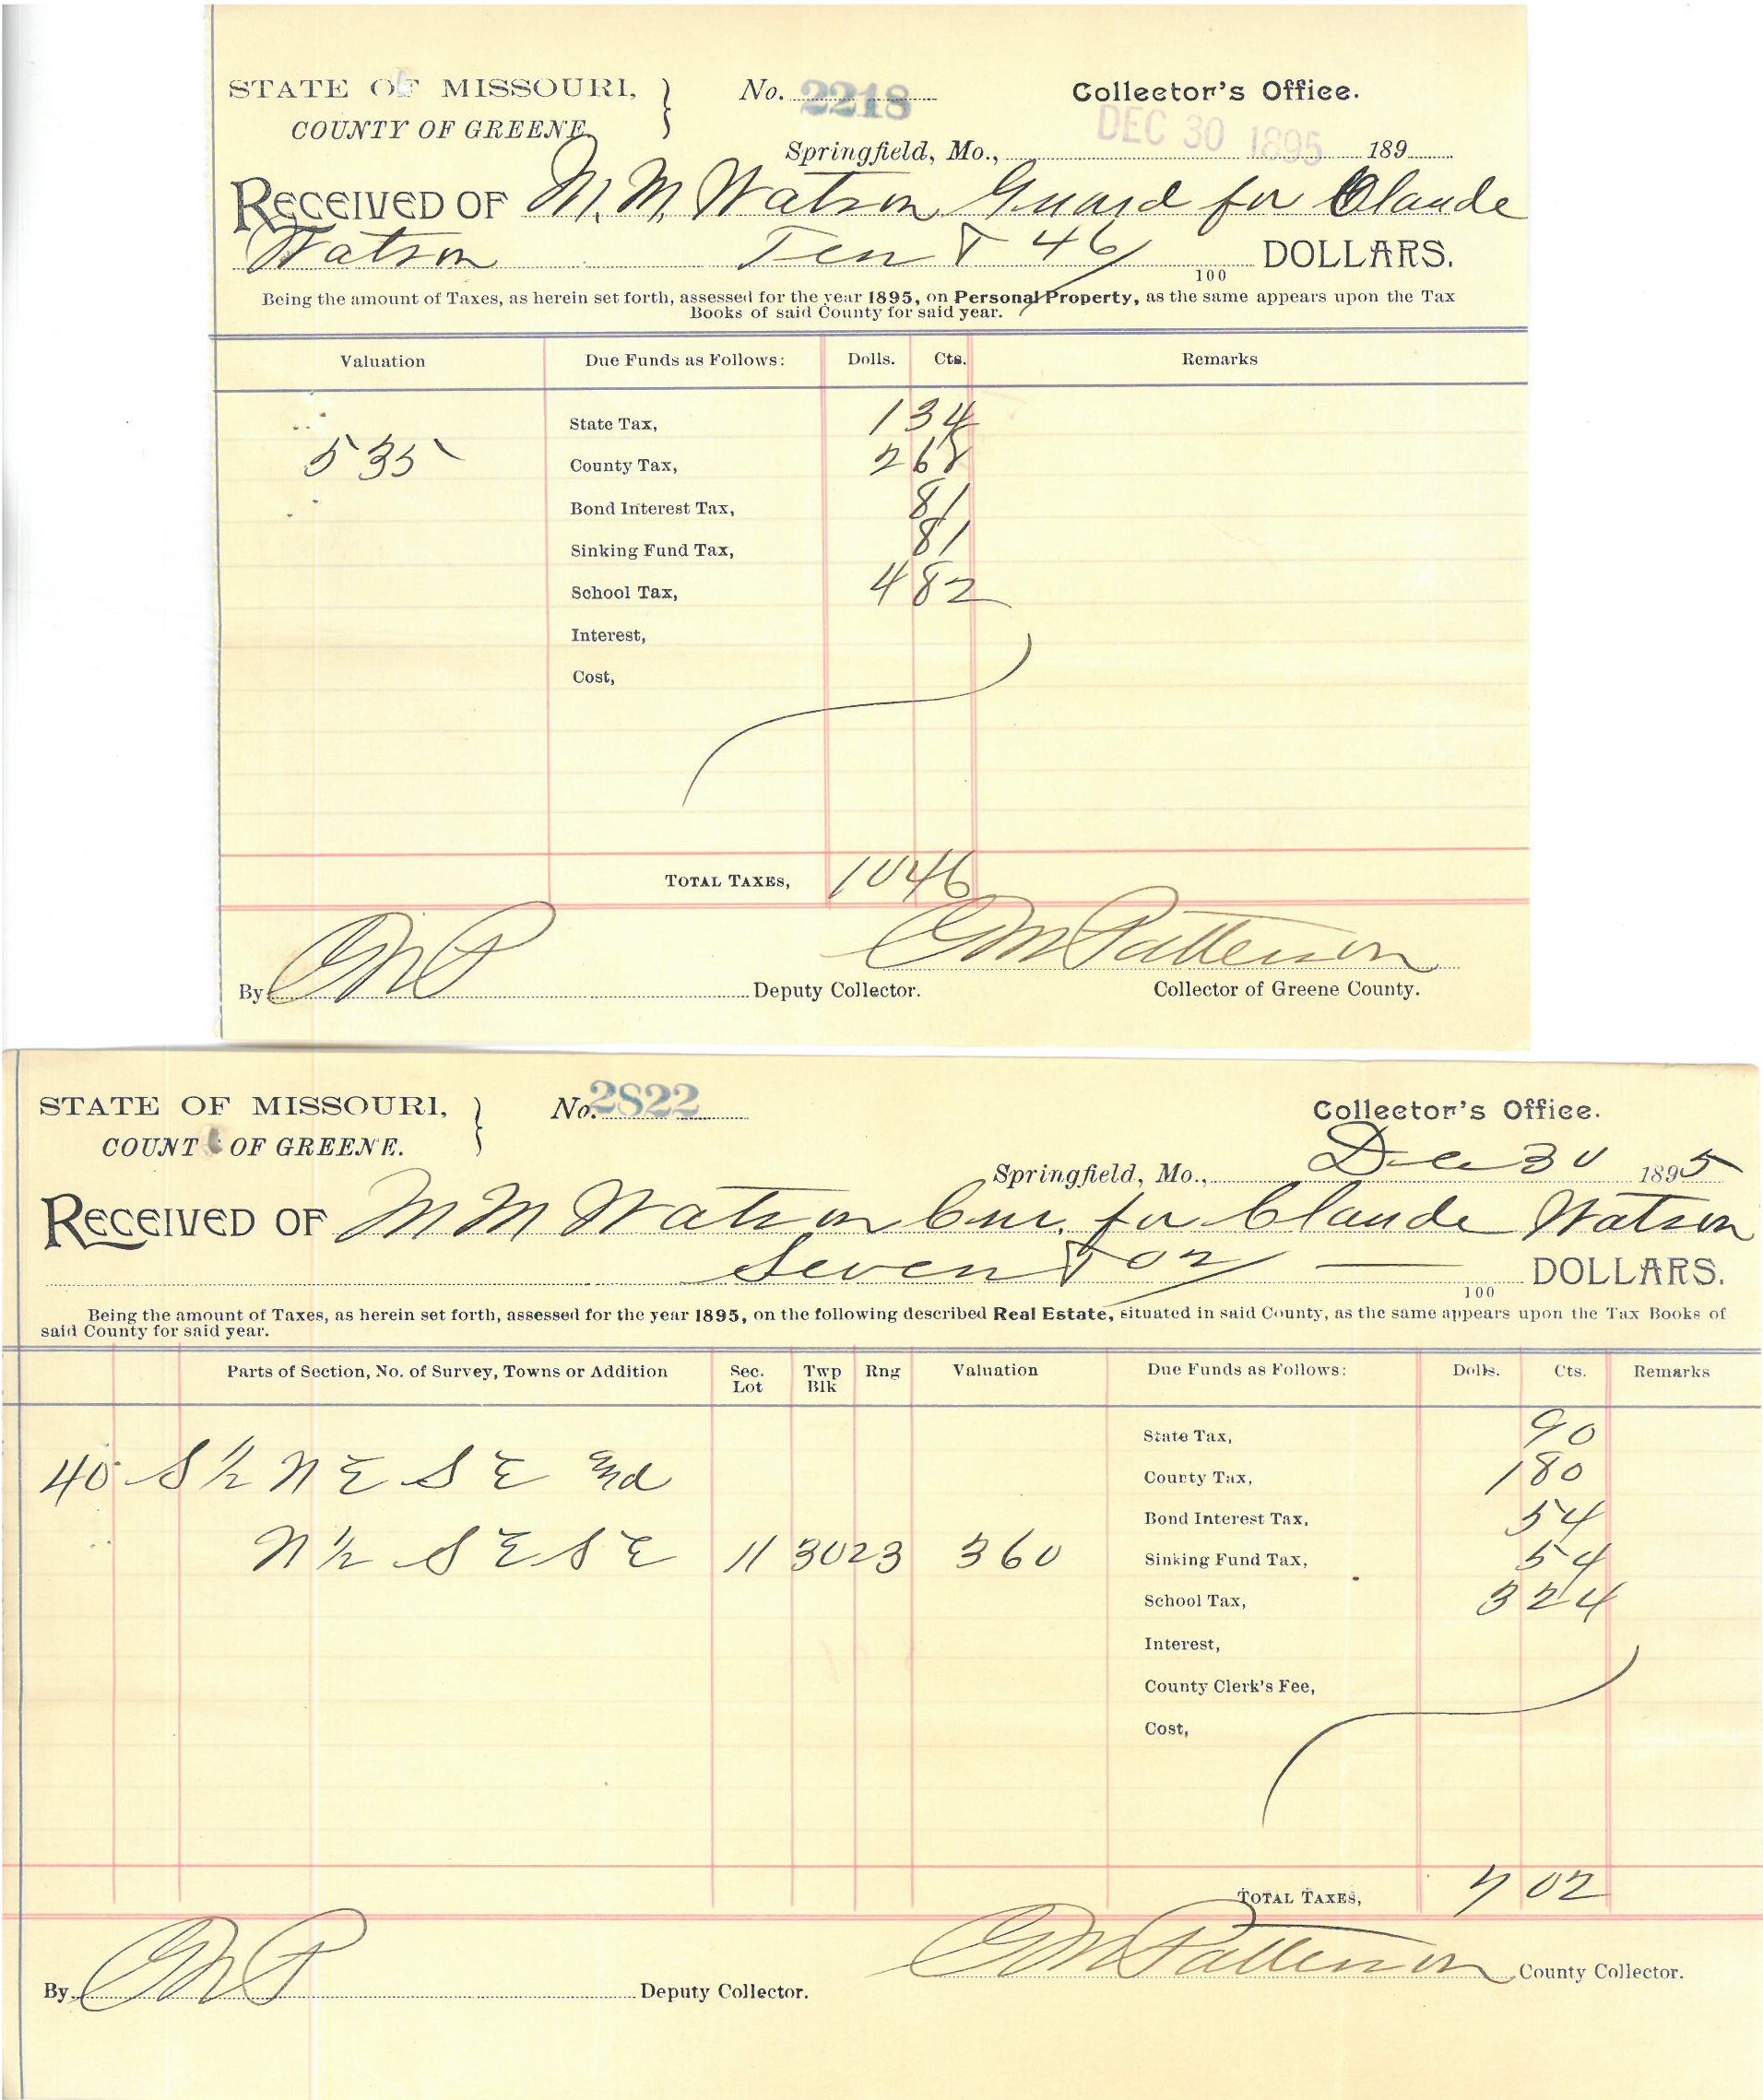 STATE OF MISSOURI, } No. 2218 Collector's Office.
COUNTY OF GREENE,
DEC 30 1895
Springfield, Mo., 189
RECEIVED OF M. M. Watson Guard for Claude
Watson Ten & 46/100 DOLLARS.
Being the amount of Taxes, as herein set forth, assessed for the year 1895, on Personal Property, as the same appears upon the Tax
Books of said County for said year.
Valuation Due Funds as Follows: Dolls. Cts. Remarks
State Tax, 1 34
535 County Tax, 2 68
Bond Interest Tax, 81
Sinking Fund Tax, 81
School Tax, 4 82
Interest,
Cost,
TOTAL TAXES, 10 46
GMP GM Patterson
By Deputy Collector. Collector of Greene County.
STATE OF MISSOURI, } No. 2822 Collector's Office.
COUNT OF GREENE.
Springfield, Mo., Dec 30 1895
RECEIVED OF M M Watson Cur. for Claude Watson
Seven & 02/100 DOLLARS.
Being the amount of Taxes, as herein set forth, assessed for the year 1895, on the following described Real Estate, situated in said County, as the same appears upon the Tax Books of
said County for said year.
Parts of Section, No. of Survey, Towns or Addition Sec. Lot Twp Blk Rng Valuation Due Funds as Follows: Dolls. Cts. Remarks
State Tax, 90
40 S 1/2 N E S E County Tax, 1 80
Bond Interest Tax, 54
N 1/2 S E S E 11 30 23 360 Sinking Fund Tax, 54
School Tax, 3 24
Interest,
County Clerk's Fee,
Cost,
TOTAL TAXES, 7 02
By GMP Deputy Collector. GM Patterson County Collector.